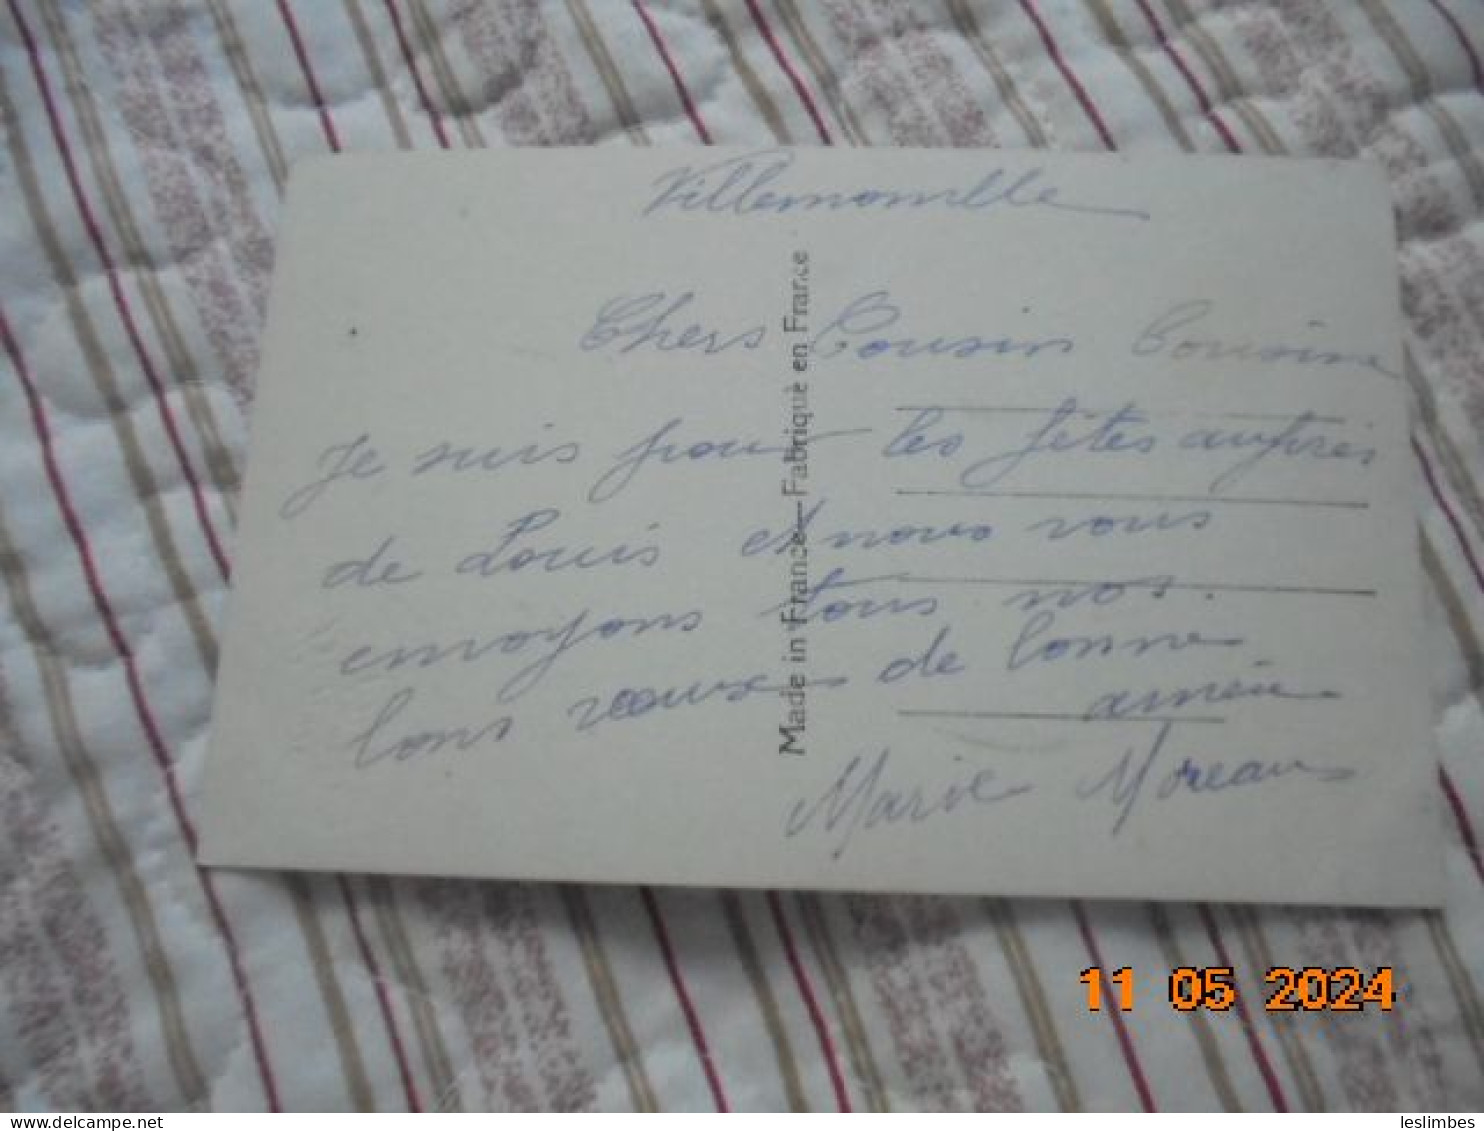 Villemomble
Chers Cousin Cousine
Je suis pour les fêtes auprès
de Louis et nous vous
envoyons tous nos
bons voeux de bonne
année
Marie Moreau
Made in France - Fabriqué en France
11 05 2024
delcampe.net
leslimbes